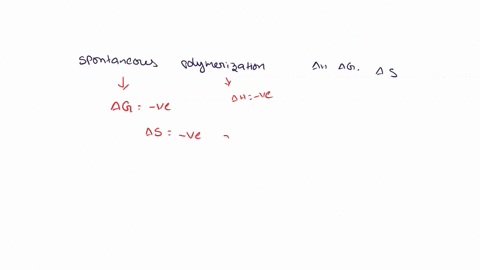 spontaneous polymerization ΔH ΔG. ΔS
ΔG = -ve ΔH = -ve
ΔS = -ve